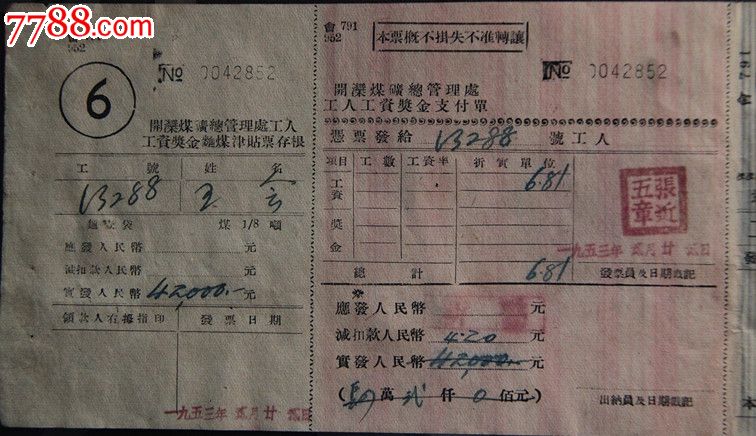 7788.com
會 791
952
本票概不掛失不准轉讓
No 0042852
No 0042852
6
開灤煤礦總管理處工人
工資獎金麵煤津貼票存根
工 號 姓 名
13288 王
麵 袋 煤 1/8 噸
應發人民幣 元
減扣款人民幣 元
實發人民幣 42,000.- 元
領款人右拇指印 發票日期
一九五三年 貳月 廿 貳日
開灤煤礦總管理處
工人工資獎金支付單
憑票發給 13288 號工人
項目 工數 工資率 折實單位
工資 6.81
獎金
總計 6.81
張
五
章
一九五三年 貳月 廿 貳日
發票員及日期戳記
應發人民幣 元
減扣款人民幣 4.20 元
實發人民幣 42,000.- 元
( 萬 貳 仟 0 佰元 )
出納員及日期戳記